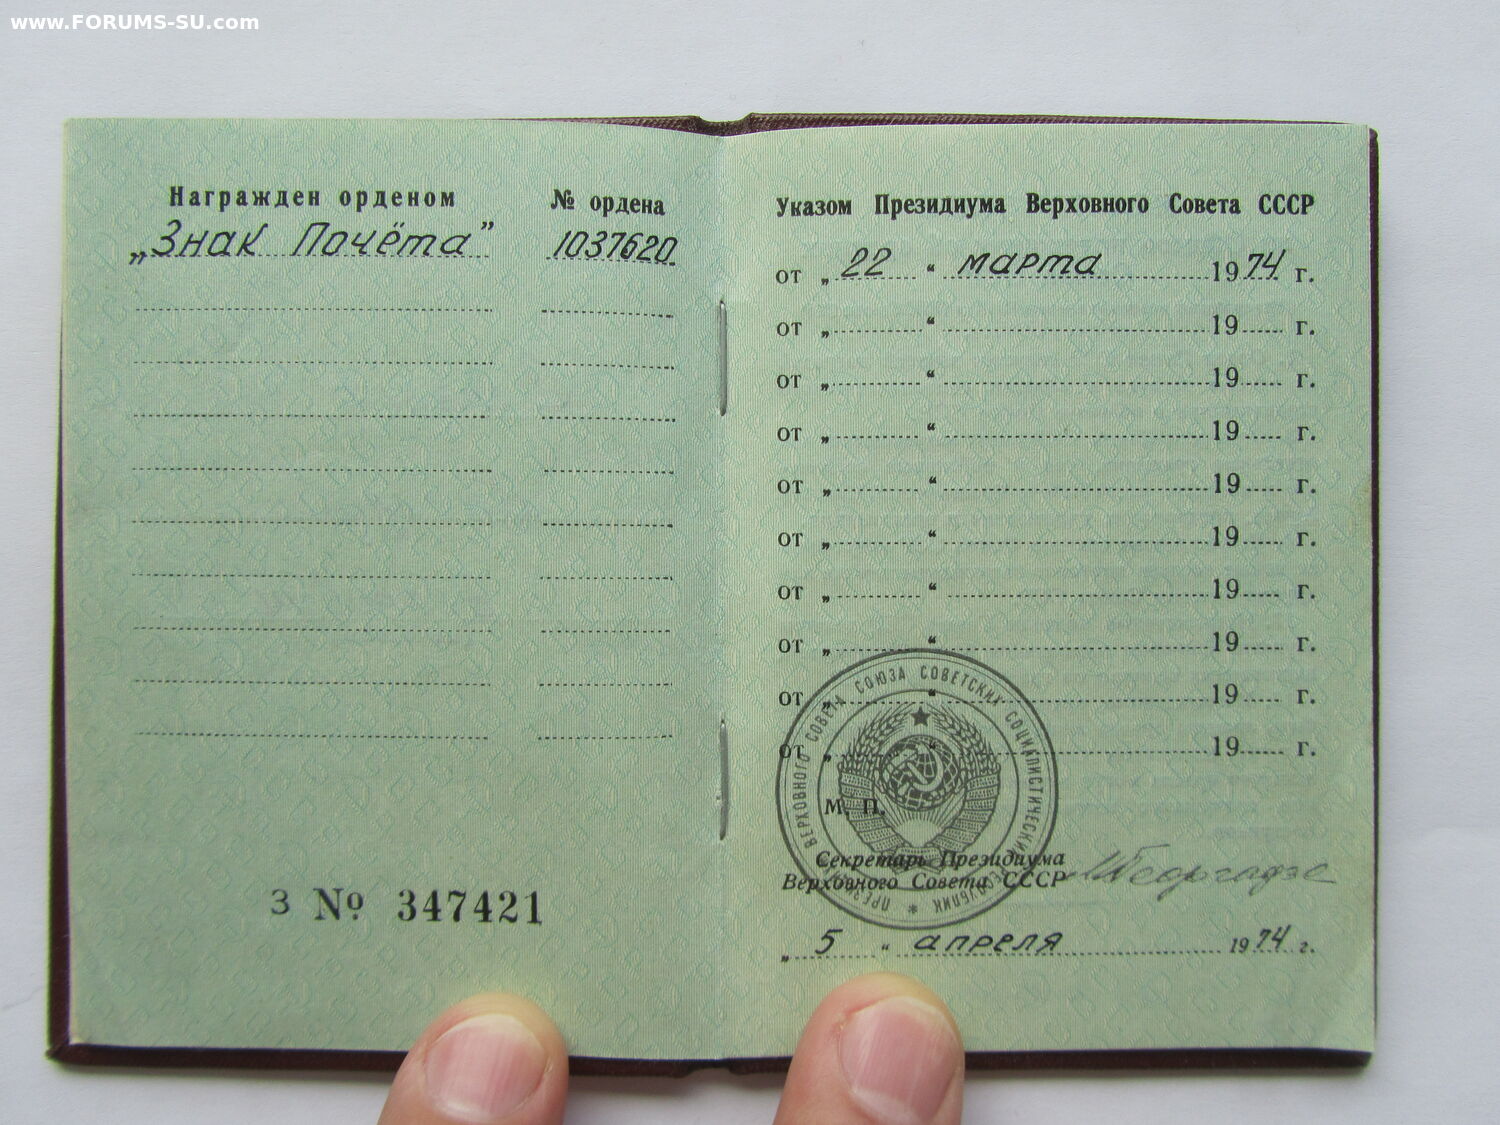 www.FORUMS-SU.com
Награжден орденом
№ ордена
„Знак Почёта”
1037620
З № 347421
Указом Президиума Верховного Совета СССР
от „ 22 “ марта 1974 г.
от „ “ 19 г.
от „ “ 19 г.
от „ “ 19 г.
от „ “ 19 г.
от „ “ 19 г.
от „ “ 19 г.
от „ “ 19 г.
от „ “ 19 г.
от „ “ 19 г.
ПРЕЗИДИУМ ВЕРХОВНОГО СОВЕТА СОЮЗА СОВЕТСКИХ СОЦИАЛИСТИЧЕСКИХ РЕСПУБЛИК *
М. П.
Секретарь Президиума
Верховного Совета СССР
М Георгадзе
„ 5 “ апреля 1974 г.